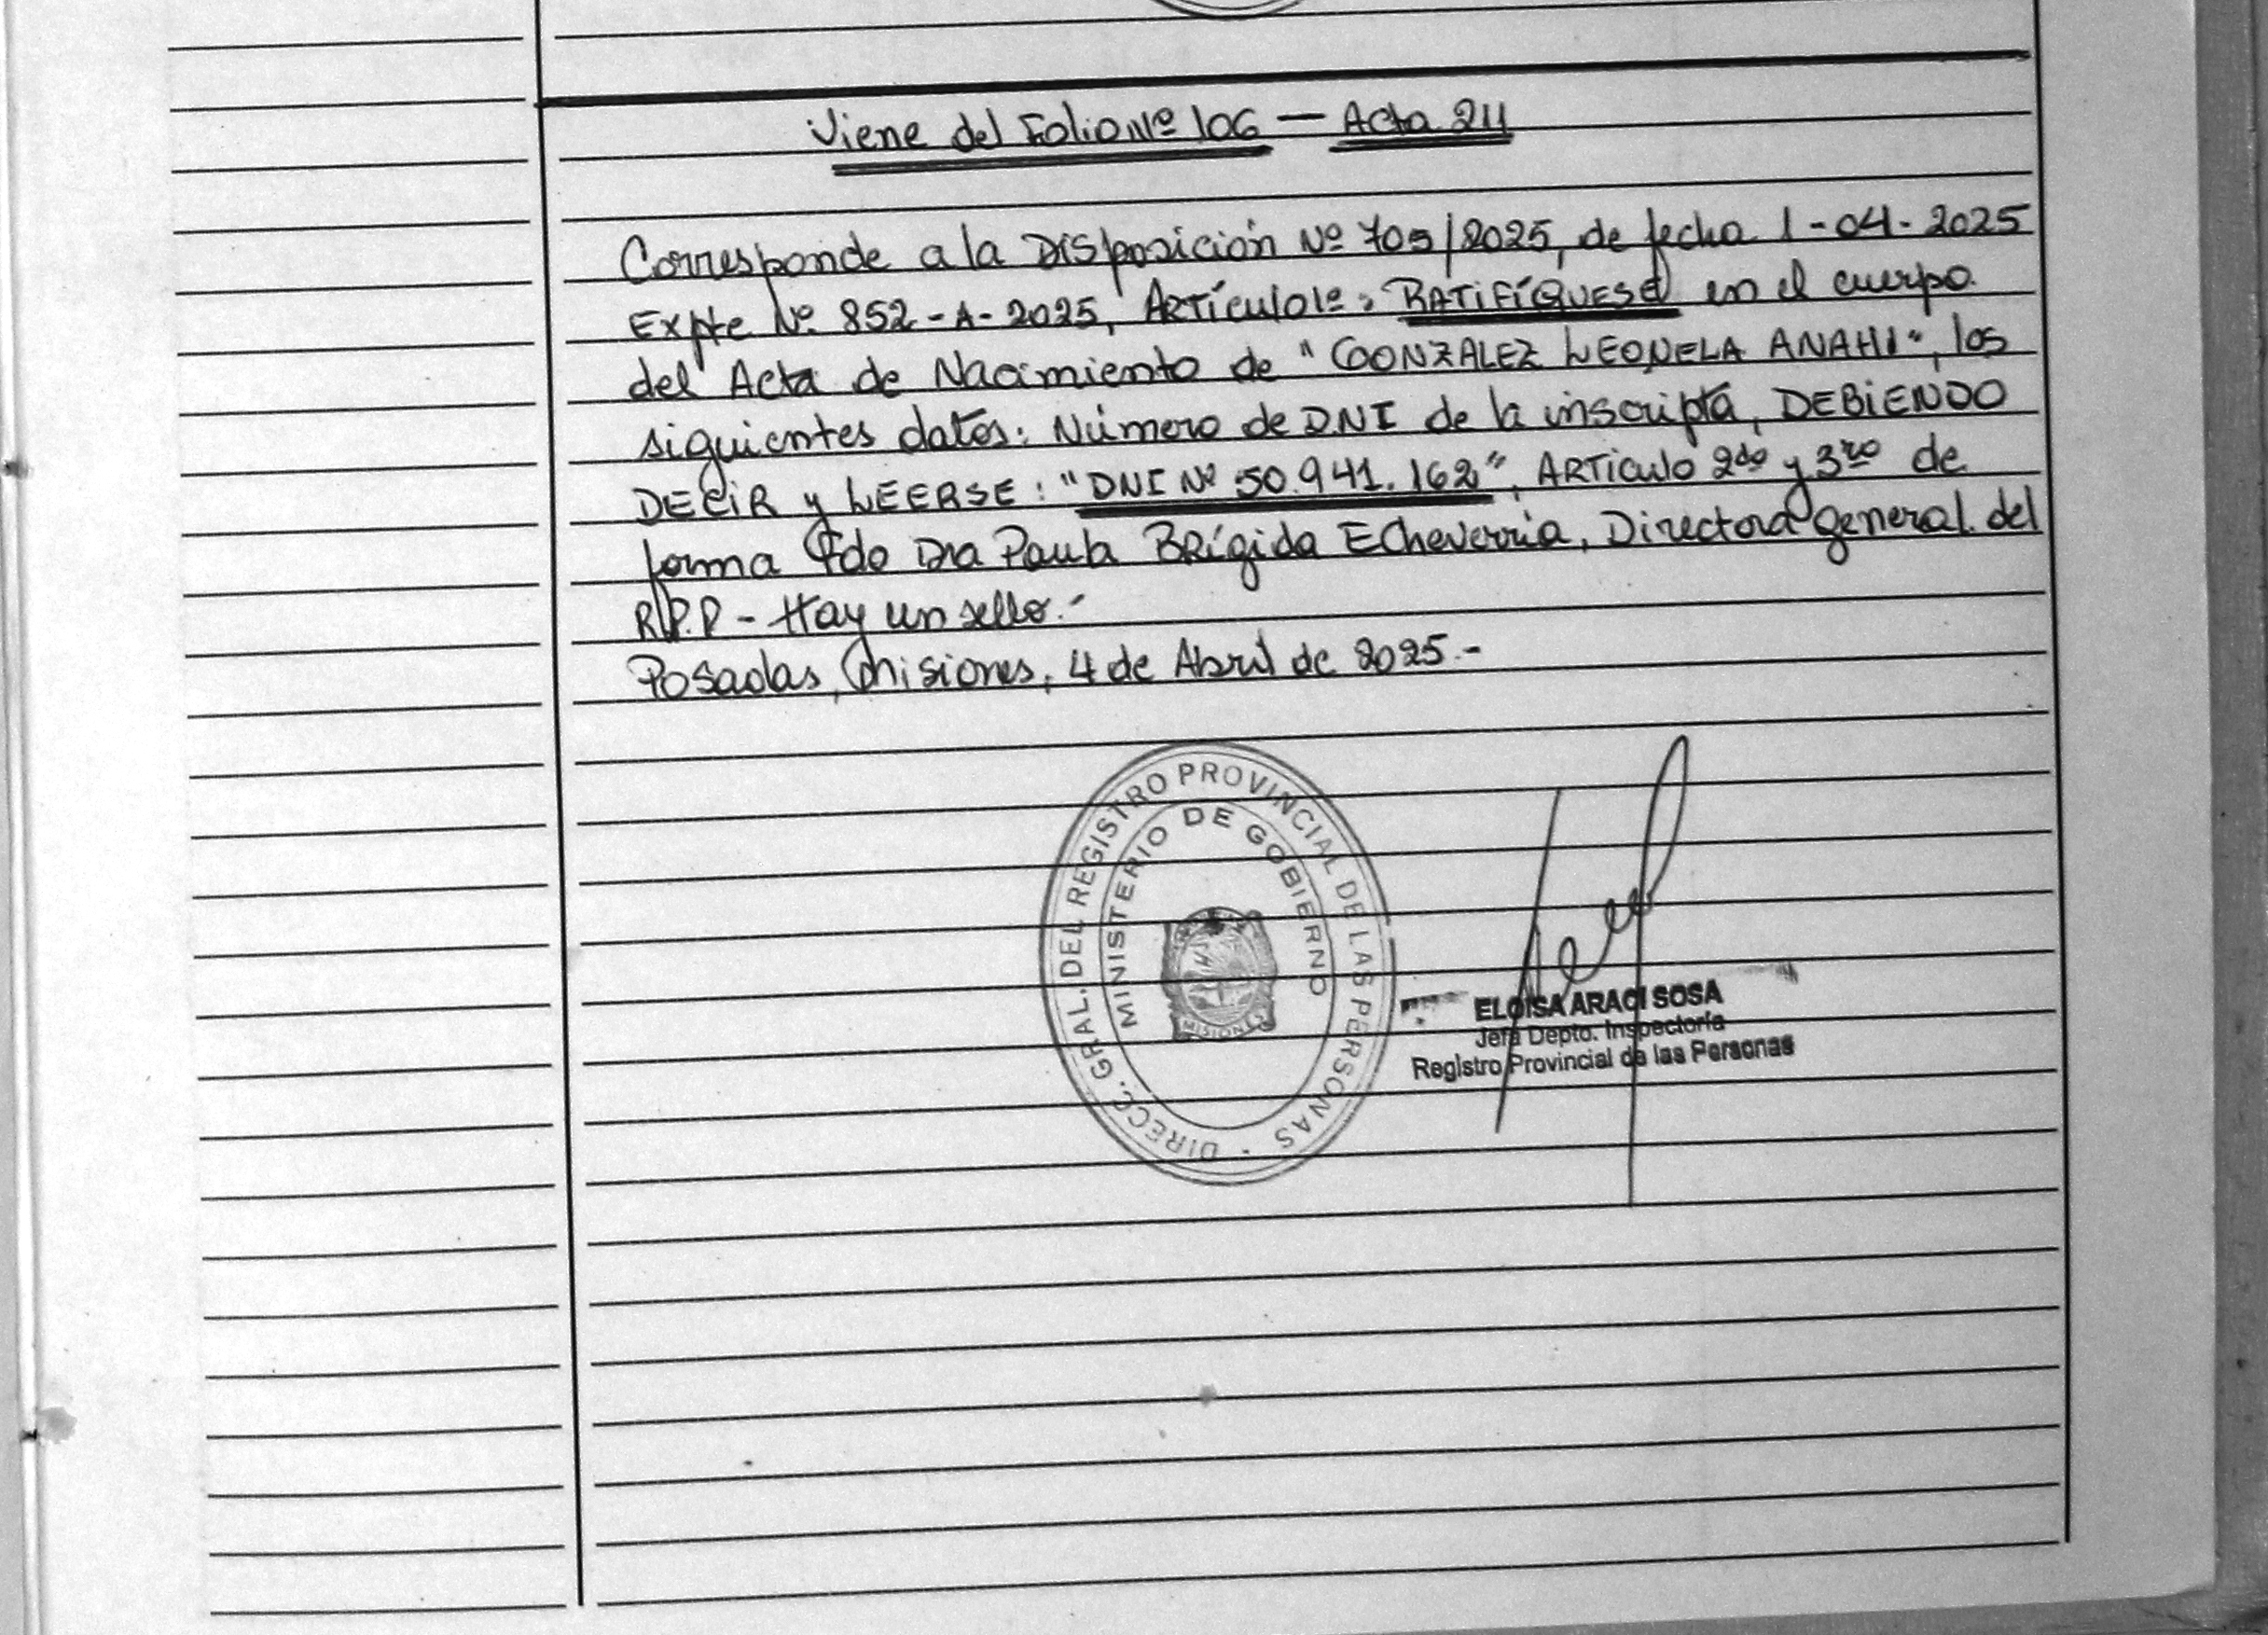 Viene del Folio Nº 106 — Acta 211
Corresponde a la Disposición Nº 705/2025, de fecha 1-04-2025
Expte Nº 852-A-2025, Artículo 1º: RATIFÍQUESE en el cuerpo
del Acta de Nacimiento de "GONZALEZ LEONELA ANAHI", los
siguientes datos: Número de DNI de la inscripta, DEBIENDO
DECIR y LEERSE: "DNI Nº 50.941.162", ARTiculo 2do y 3ro de
forma Fdo Dra Paula Brígida Echeverria, Directora general del
R.P.P - Hay un sello.-
Posadas, Misiones, 4 de Abril de 2025.-
DIRECC. GRAL. DEL REGISTRO PROVINCIAL DE LAS PERSONAS
MINISTERIO DE GOBIERNO
MISIONES
ELOISA ARACI SOSA
Jefa Depto. Inspectoría
Registro Provincial de las Personas